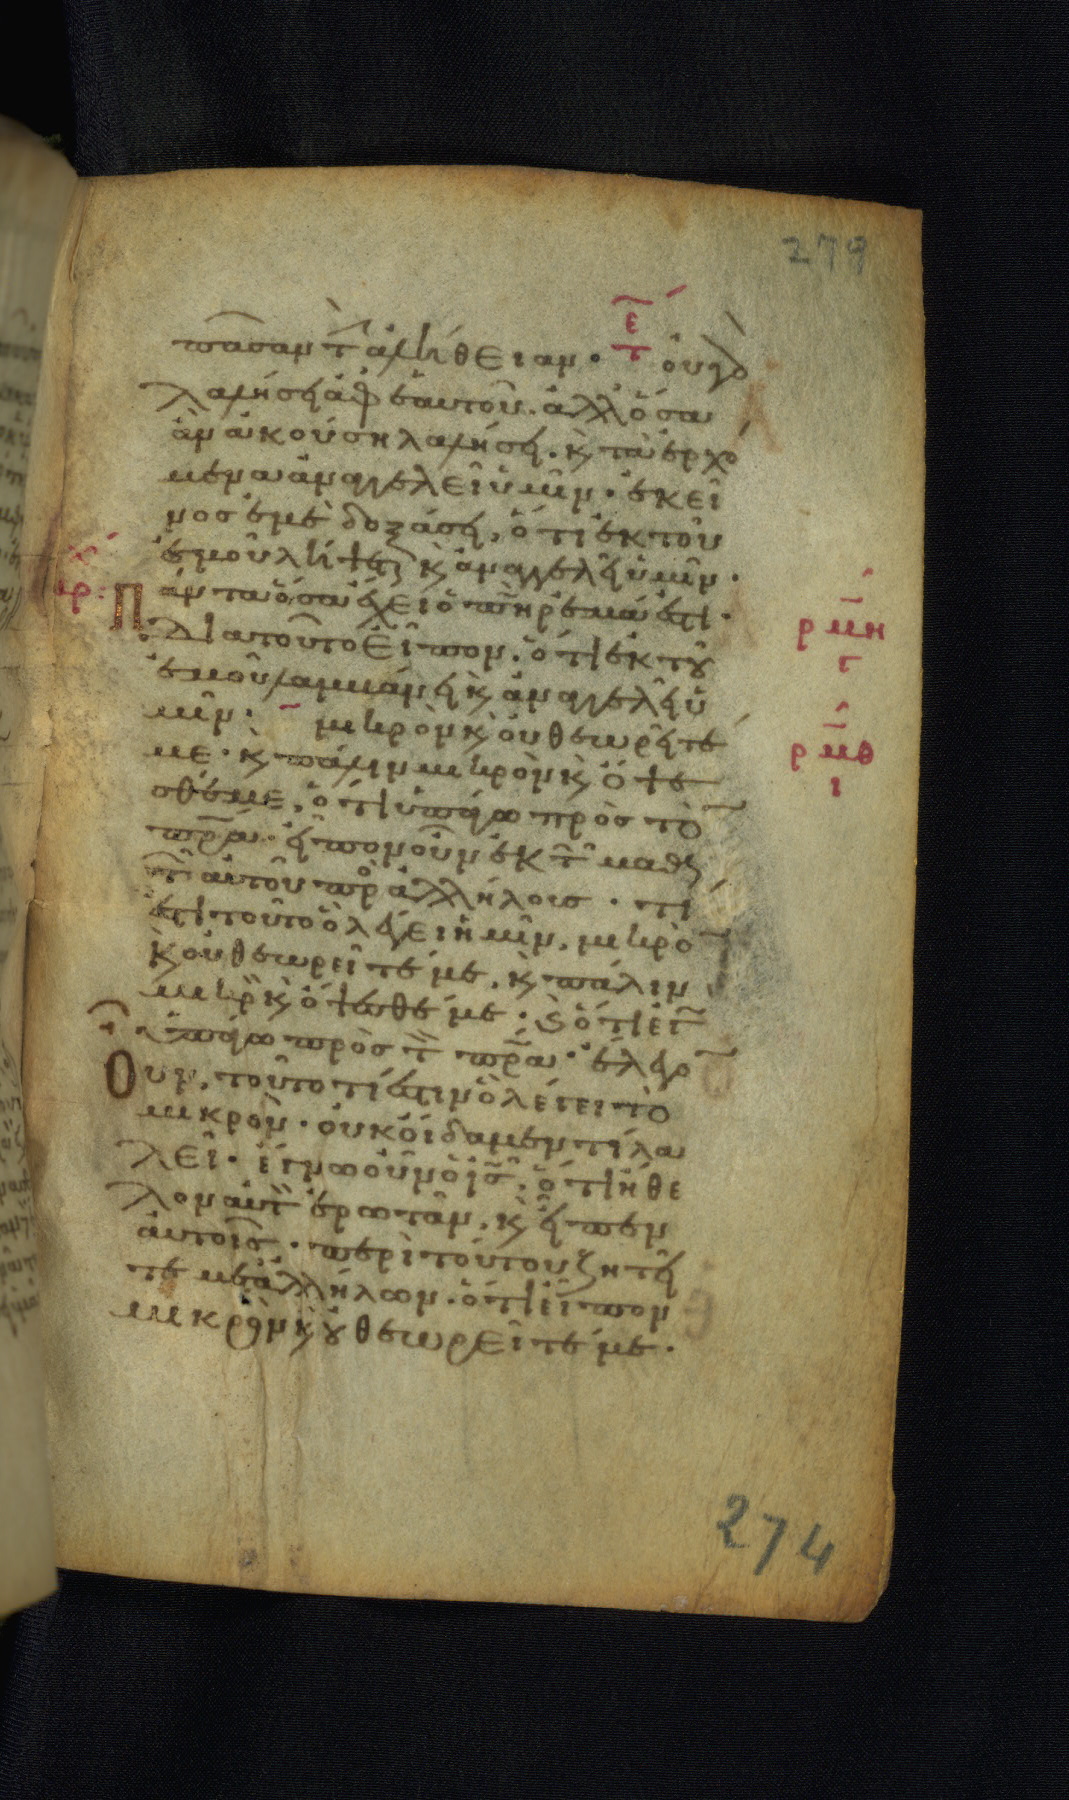 279
πᾶσαν τ̀ ἀλήθειαν· οὐ γὰρ
λαλήσει ἀφ ἑαυτοῦ· ἀλλ ὅσα
ἂν ἀκούση λαλήσει· κ̀ τὰ ἐρχό
μενα ἀναγγελεῖ ὑμῖν· ἐκεῖ
νος ἐμὲ δοξάσει, ὅτι ἐκ τοῦ
ἐμοῦ λήψεται κ̀ ἀναγγελεῖ ὑμῖν·
Πάντα ὅσα ἔχει ὁ π̅η̅ρ ἐμά ἐστι·
ρμη
Διατοῦτο εἶπον, ὅτι ἐκ τοῦ
ἐμοῦ λαμβάνει κ̀ ἀναγγελεῖ ὑ
μῖν· μικρὸν κ̀ οὐ θεωρεῖτέ
ρμθ
ι
με· κ̀ πάλιν μικρὸν κ̀ ὄψε
σθέ με, ὅτι ὑπάγω πρὸς τὸ
π̅ρ̅α· εἶπον οὖν ἐκ τ̂ μαθη
τ̂ αὐτοῦ πρ ἀλλήλους· τί
ἐστι τοῦτο ὃ λέγει ἡμῖν, μικρὸ
κ οὐ θεωρεῖτέ με, κ̀ πάλιν
μικρ κ̀ ὄψεσθέ με· κ̀ ὅτι ἐγ
ὑπάγω πρὸς τ̀ π̅ρ̅α· ἔλεγο
Οὖν, τοῦτο τί ἐστιν ὃ λέγει τὸ
μικρόν· οὐκ οἴδαμεν τί λα
λεῖ· ἔγνω οὖν ὁ ι̅ς̅, ὅτι ἤθε
λον αὐτ ἐρωτᾶν, κ̀ εἶπεν
αὐτοῖς· περὶ τούτου ζητεῖ
τε μετ ἀλλήλων· ὅτι εἶπον
μικρὸν κ̀ οὐ θεωρεῖτέ με·
274